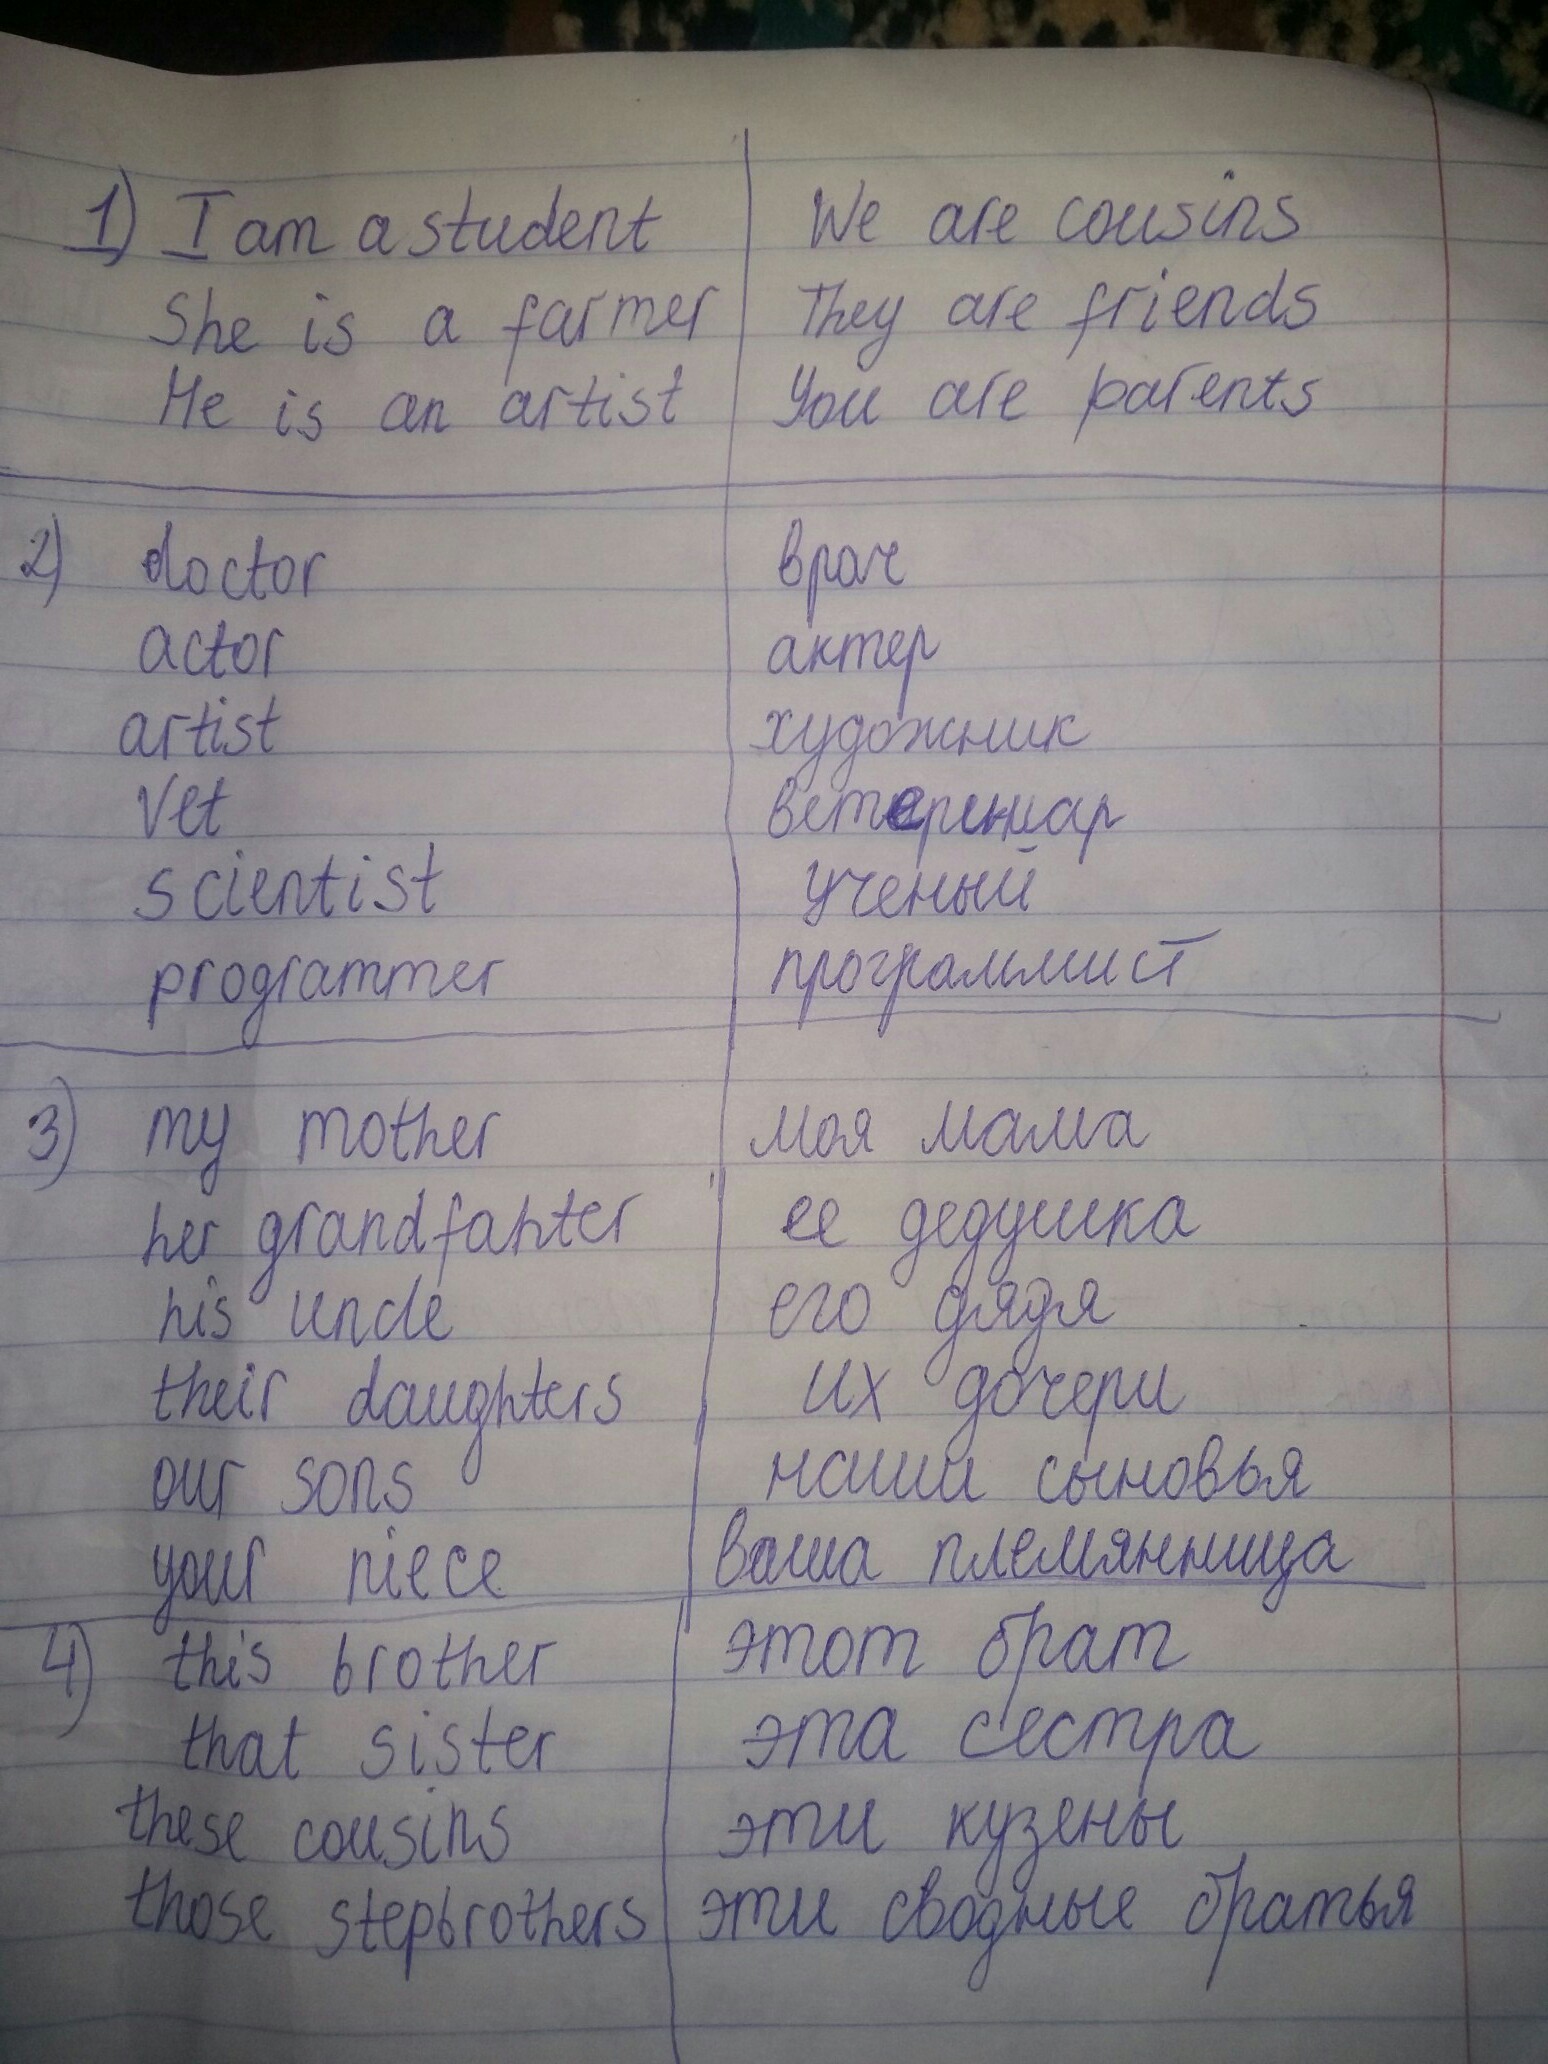 1) I am a student We are cousins
She is a farmer They are friends
He is an artist You are parents
2) doctor врач
actor актер
artist художник
vet ветерениар
scientist ученый
programmer программист
3) my mother моя мама
her grandfahter ее дедушка
his uncle его дядя
their daughters их дочери
our sons наши сыновья
your niece ваша племянница
4) this brother этот брат
that sister эта сестра
these cousins эти кузены
those stepbrothers эти сводные братья